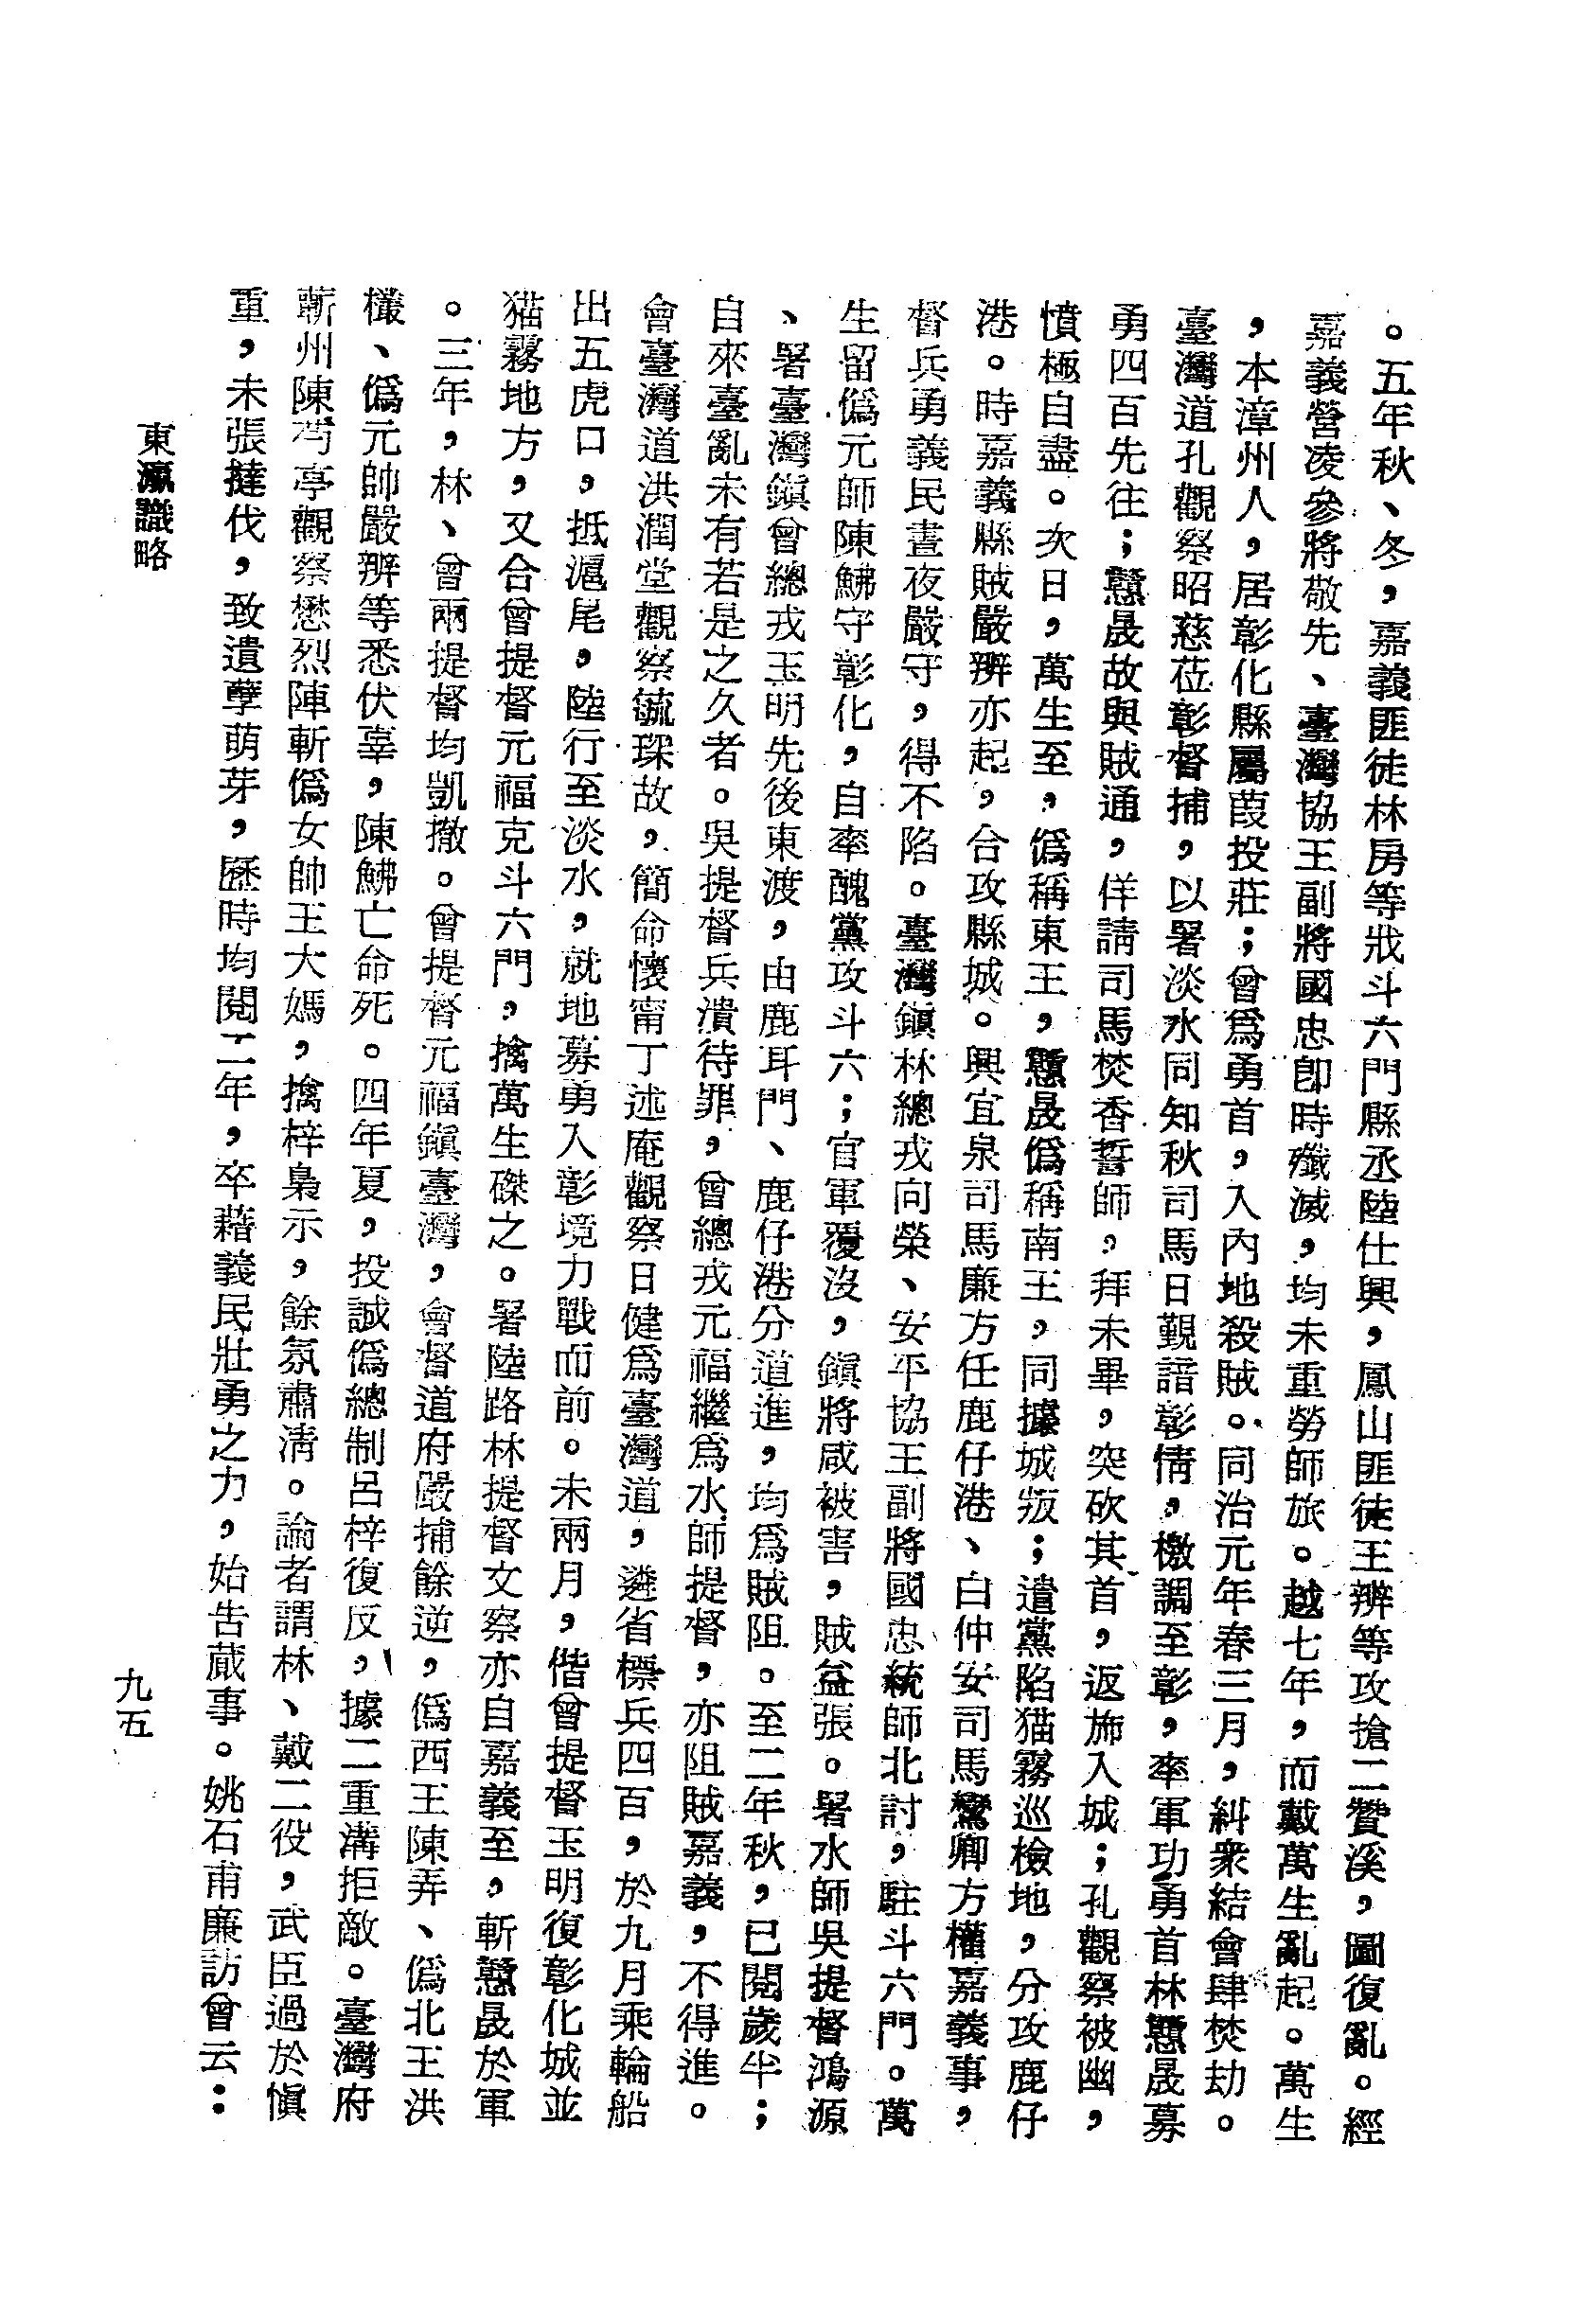 。五年秋、冬，嘉義匪徒林房等戕斗六門縣丞陸仕興，鳳山匪徒王辨等攻搶二贊溪，圖復亂。經
嘉義營凌參將敬先、臺灣協王副將國忠卽時殲滅，均未重勞師旅。越七年，而戴萬生亂起。萬生
，本漳州人，居彰化縣屬葭投莊；曾爲勇首，入內地殺賊。同治元年春三月，糾衆結會肆焚劫。
臺灣道孔觀察昭慈莅彰督捕，以署淡水同知秋司馬日覲諳彰情，檄調至彰，率軍功勇首林戇晟募
勇四百先往；戇晟故與賊通，佯請司馬焚香誓師，拜未畢，突砍其首，返旆入城；孔觀察被幽，
憤極自盡。次日，萬生至，僞稱東王，戇晟僞稱南王，同據城叛；遣黨陷猫霧巡檢地，分攻鹿仔
港。時嘉義縣賊嚴辨亦起，合攻縣城。興宜泉司馬廉方任鹿仔港、白仲安司馬鸞卿方權嘉義事，
督兵勇義民晝夜嚴守，得不陷。臺灣鎭林總戎向榮、安平協王副將國忠統師北討，駐斗六門。萬
生留僞元師陳鮄守彰化，自率醜黨攻斗六；官軍覆沒，鎭將咸被害，賊益張。署水師吳提督鴻源
、署臺灣鎭曾總戎玉明先後東渡，由鹿耳門、鹿仔港分道進，均爲賊阻。至二年秋，已閱歲半；
自來臺亂未有若是之久者。吳提督兵潰待罪，曾總戎元福繼爲水師提督，亦阻賊嘉義，不得進。
會臺灣道洪潤堂觀察毓琛故，簡命懷甯丁述庵觀察日健爲臺灣道，遴省標兵四百，於九月乘輪船
出五虎口，抵滬尾，陸行至淡水，就地募勇入彰境力戰而前。未兩月，偕曾提督玉明復彰化城並
猫霧地方，又合曾提督元福克斗六門，擒萬生磔之。署陸路林提督文察亦自嘉義至，斬戇晟於軍
。三年，林、曾兩提督均凱撤。曾提督元福鎭臺灣，會督道府嚴捕餘逆，僞西王陳弄、僞北王洪
欉、僞元帥嚴辨等悉伏辜，陳鮄亡命死。四年夏，投誠僞總制呂梓復反，據二重溝拒敵。臺灣府
蘄州陳亭觀察懋烈陣斬僞女帥王大媽，擒梓梟示，餘氛肅清。論者謂林、戴二役，武臣過於愼
重，未張撻伐，致遺孽萌芽，歷時均閱二年，卒藉義民壯勇之力，始告蕆事。姚石甫廉訪曾云：
東瀛識略
九五